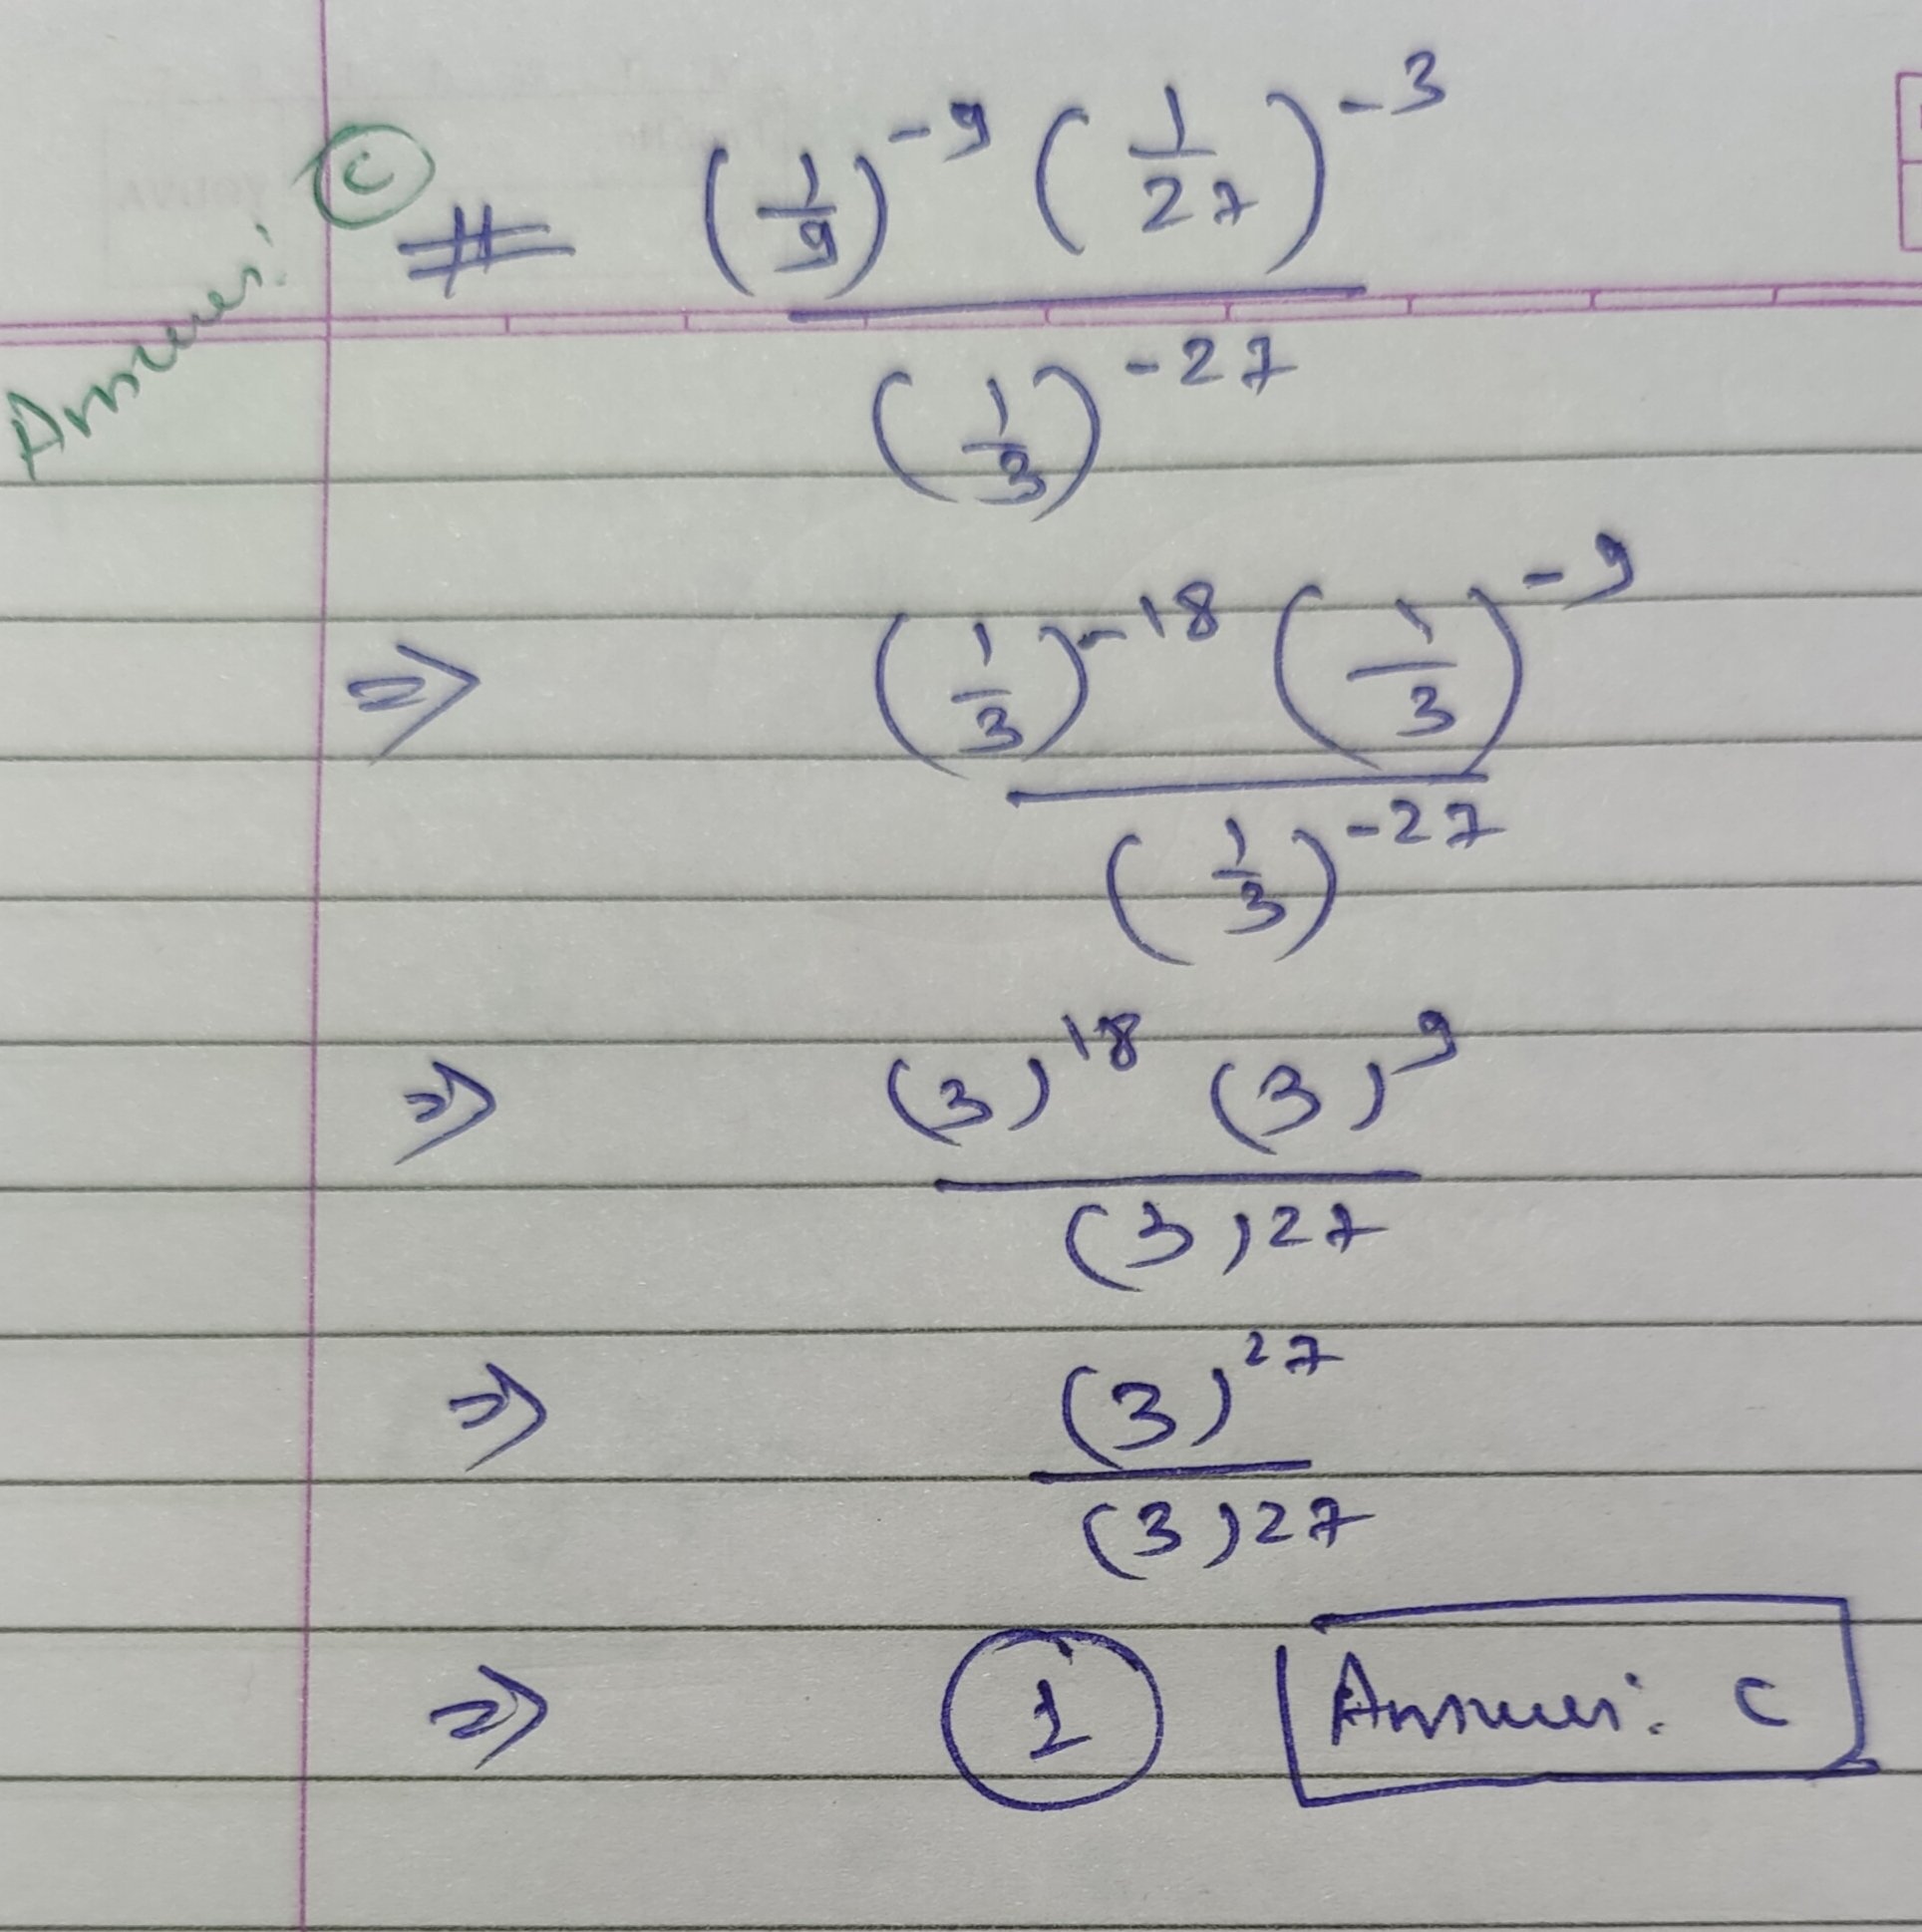 Answer: (c) # (1/9)^-9 (1/27)^-3 / (1/3)^-27
⇒ (1/3)^-18 (1/3)^-9 / (1/3)^-27
⇒ (3)^18 (3)^9 / (3)27
⇒ (3)^27 / (3)27
⇒ 1 Answer: C